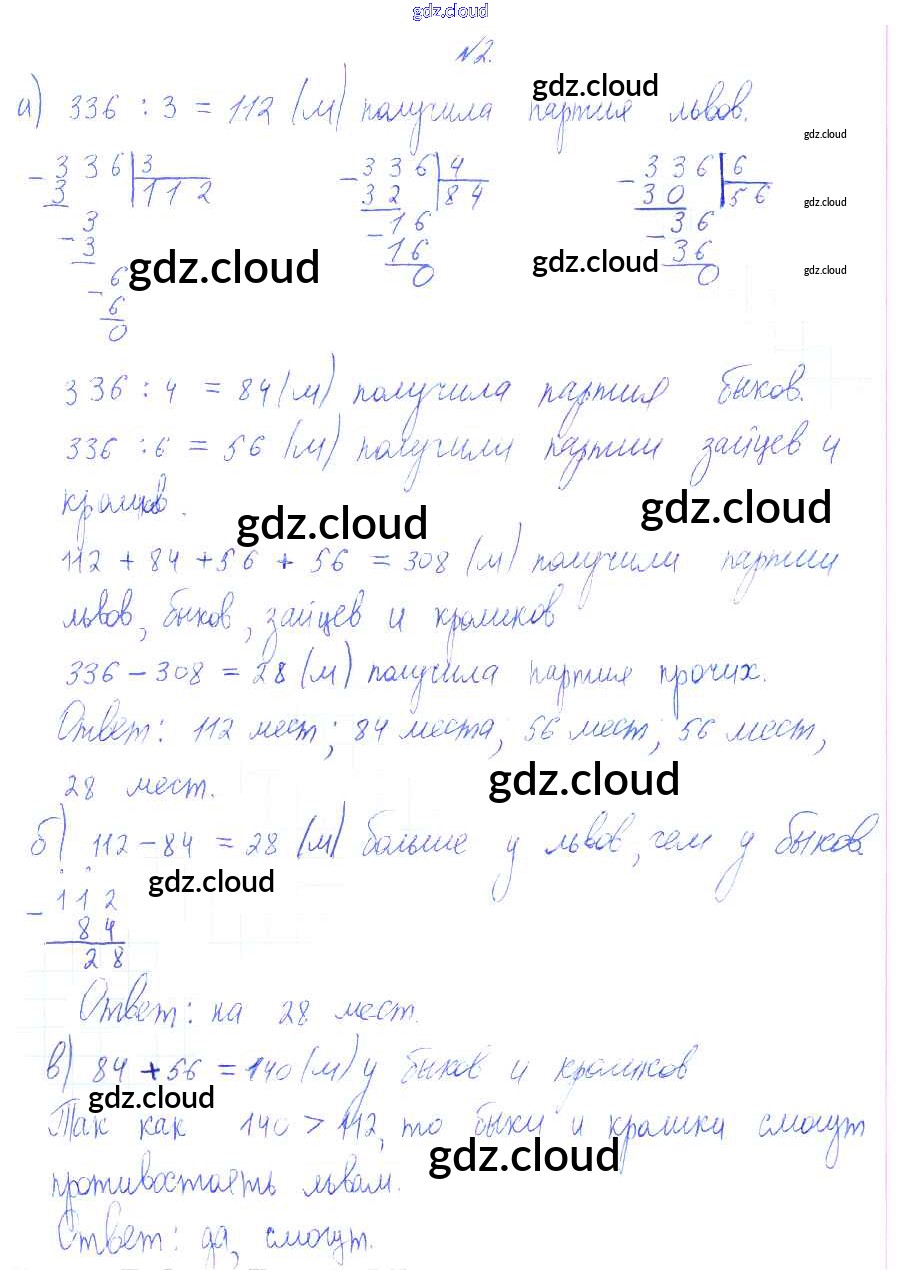 gdz.cloud
№2.
gdz.cloud
а) 336 : 3 = 112 (м) получила партия львов.
gdz.cloud
- 336 | 3   - 336 | 4   - 336 | 6
3   112   32   84   30   56
gdz.cloud
- 3   - 16   - 36
3   16   36
gdz.cloud gdz.cloud gdz.cloud
- 6   0   0
6
0
336 : 4 = 84 (м) получила партия быков.
336 : 6 = 56 (м) получили партии зайцев и
кроликов.
gdz.cloud gdz.cloud
112 + 84 + 56 + 56 = 308 (м) получили партии
львов, быков, зайцев и кроликов
336 - 308 = 28 (м) получила партия прочих.
Ответ: 112 мест; 84 места; 56 мест; 56 мест,
28 мест.
gdz.cloud
б) 112 - 84 = 28 (м) больше у львов, чем у быков.
gdz.cloud
- 112
84
28
Ответ: на 28 мест.
в) 84 + 56 = 140 (м) у быков и кроликов
gdz.cloud
Так как 140 > 112, то быки и кролики смогут
gdz.cloud
противостоять львам.
Ответ: да, смогут.